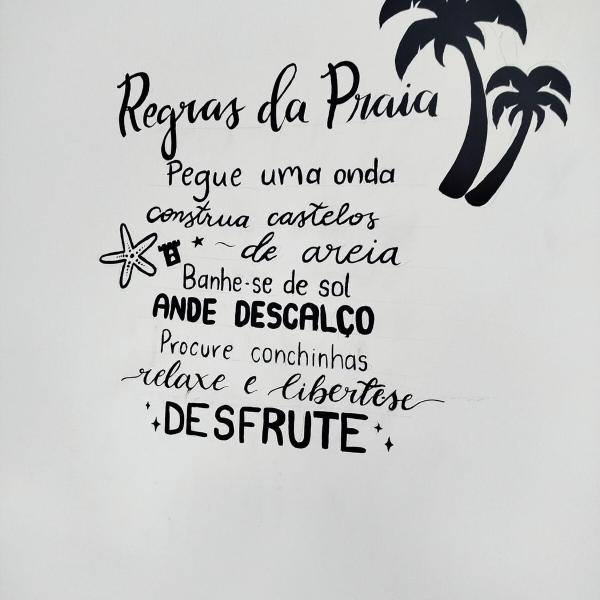 Regras da Praia
Pegue uma onda
construa castelos
~ de areia
Banhe-se de sol
ANDE DESCALÇO
Procure conchinhas
relaxe e libertese
DESFRUTE